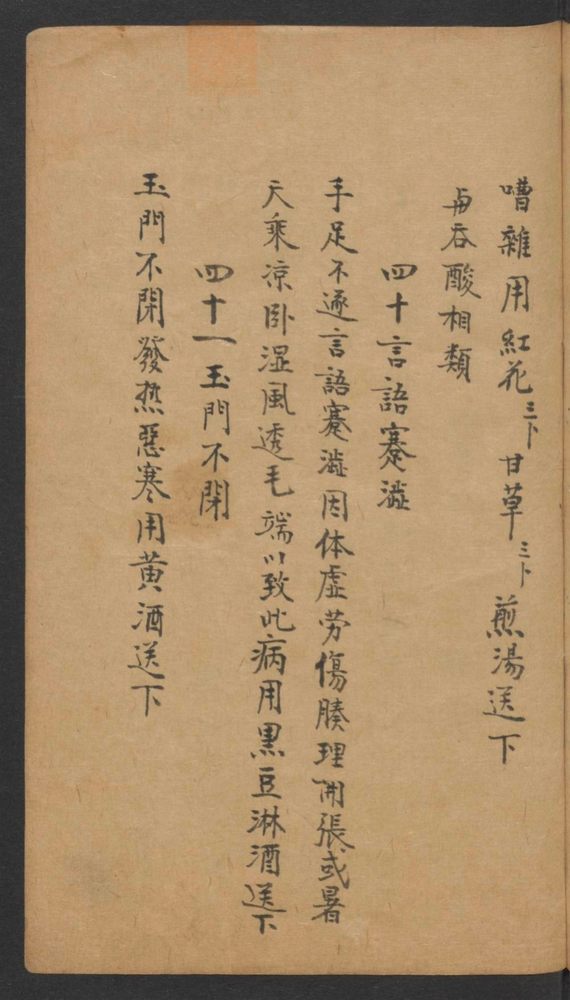 嘈雜用紅花三卜甘草三卜煎湯送下
与吞酸相類
四十言語蹇澁
手足不遂言語蹇澁因体虛劳傷腠理開張或暑
天乘凉卧湿風透毛端以致此病用黑豆淋酒送下
四十一玉門不閉
玉門不閉發热惡寒用黄酒送下